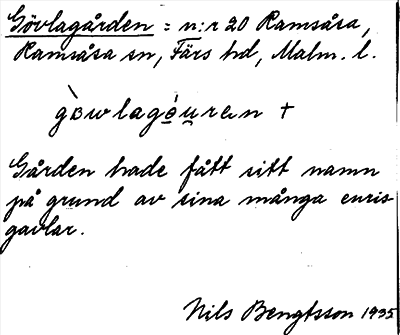 Gövlagården = n:r 20 Ramsåsa,
Ramsåsa sn, Färs hd, Malm. l.
gàwlagǿu̱ren +
Gården hade fått sitt namn
på grund av sina många
gavlar.
Nils Bengtsson 1935